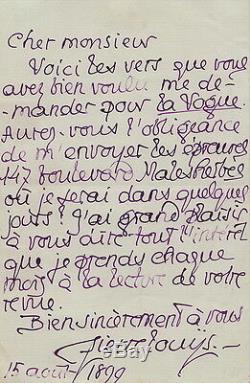 Cher monsieur
Voici les vers que vous
avez bien voulu me de-
mander pour la Vogue
Aurez-vous l'obligeance
de m'envoyer les épreuves
147 boulevard Malesherbes
où je serai dans quelques
jours? J'ai grand plaisir
à vous dire tout l'intérêt
que je prends chaque
mois à la lecture de votre
revue.
Bien sincèrement à vous
Pierre Louÿs.
15 août 1899